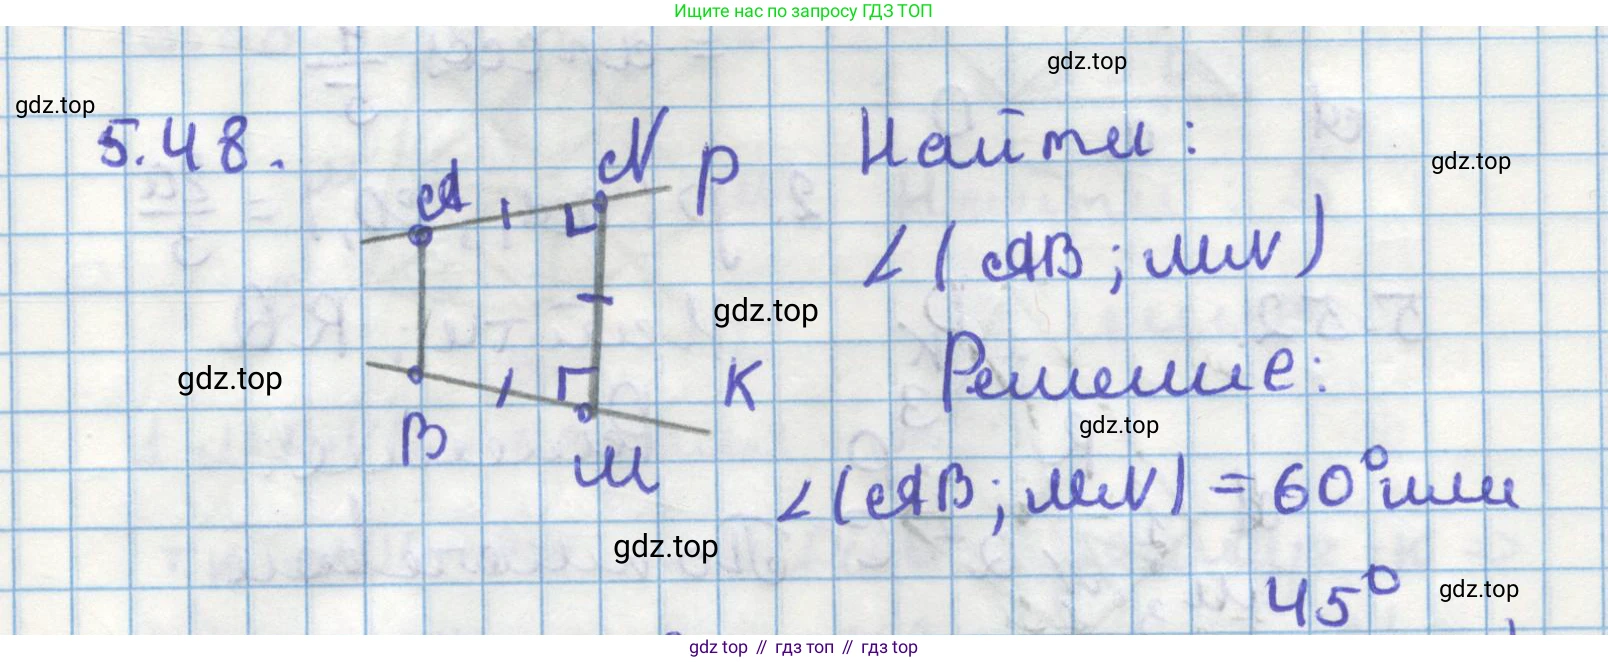 Ищите нас по запросу ГДЗ ТОП
gdz.top
gdz.top
5.48.
A
N
P
Найти:
gdz.top
∠(AB; MN)
gdz.top
gdz.top
B
M
K
Решение:
gdz.top
∠(AB; MN) = 60° или
45°
gdz.top
gdz.top
gdz top // гдз топ // гдз top